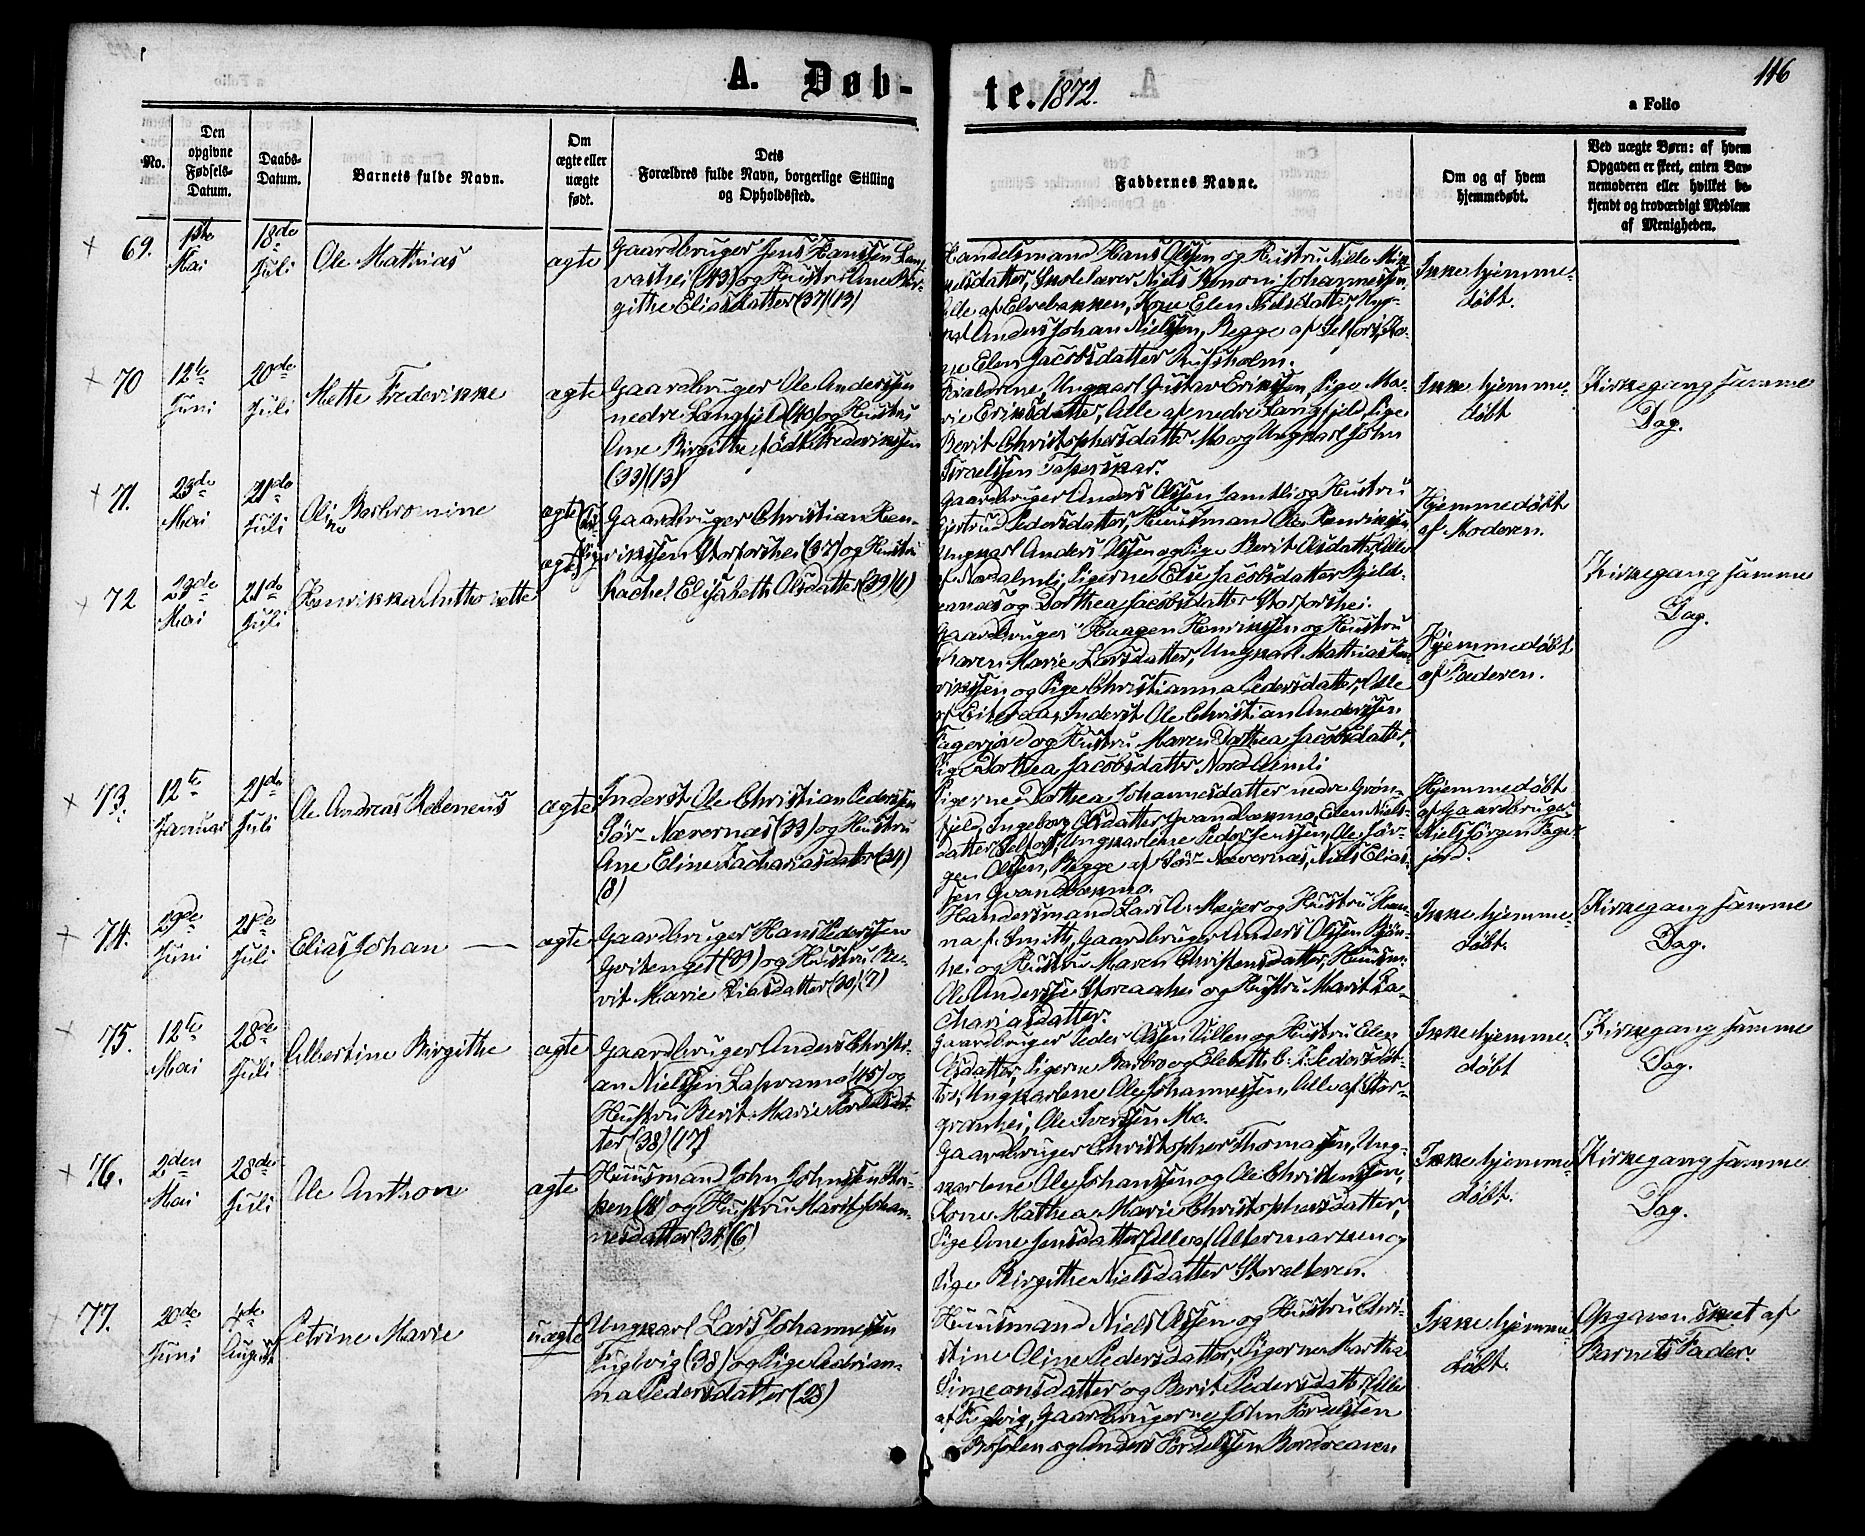 A. Døb-
te. 1872.
116
a Folio
No.
Den
opgivne
Fødsels-
Datum.
Daabs-
Datum.
Barnets fulde Navn.
Om
ægte eller
uægte
født.
Dets
Forældres fulde Navn, borgerlige Stilling
og Opholdssted.
Faddernes Navne.
Om og af hvem
hjemmedøbt.
Ved uægte Børn: af hvem
Opgaven er skeet, enten Bar-
nemoderen eller hvilket be-
kjendt og troværdigt Medlem
af Menigheden.
69.
1ste
Mai
18de
Juli
Ole Mathias
ægte
Gaardbruger Jens Hanssen
(43) og Hustru Ane Bir-
githe Eliasdatter (37) (13)
Handelsmand Hans Olssen og Hustru
datter, Skolelærer Niels Simoni Johannessen,
Alle af Elvebakken, Kone Elen Nielsdatter, Ung-
Anders Johan Nielssen, Begge af Selfors, Ko-
ne Elen Jacobsdatter
Ikke hjemme-
døbt.
70
12te
Juni
20de
Juli
Mette Frederikke
ægte
Gaardbruger Ole Anderssen
nedre Langfjeld (40) og Hustru
Ane Birgithe født Frederikssen
(33) (13)
Forældrene, Ungkarl Gustav Erikssen, Pige Ma-
rie Eriksdatter, Alle af nedre Langfjeld, Pige
Berit Christophersdatter Mo og Ungkarl John
Israelssen
Ikke hjemme-
døbt
Kirkegang samme
Dag.
71.
23de
Mai
21de
Juli
Barbromine
ægte
Gaardbruger Christian Hen-
rikssen Storforshei (37) og Hustru
Rachel Elisabeth Olsdatter (39) (1)
Gaardbruger Anders Olssen Jamtli og Hustru
Pedersdatter, Huusmand Ole Henrikssen,
Ungkarl Anders Olssen og Pige Berit Olsdatter, Alle
af Nordalmli, Pigerne Else Jacobsdatter
og Dorthea Jacobsdatter Storforshei.
Hjemmedøbt
af Moderen.
72
23de
Mai
21de
Juli
Henrikka Anthonette
ægte
Gaardbruger Haagen Henrikssen og Hustru
Maren Marie Larsdatter, Ungkarl Mathias Hen-
rikssen og Pige Christianna Pedersdatter, Alle
af Eiteraa, Inderst Ole Christian Anderssen
Fagerjord og Hustru Maren Dorthea Jacobsdatter,
Pige Dorthea Jacobsdatter Nord Almli
Hjemmedøbt
af Faderen.
Kirkegang samme
Dag.
73.
12te
Januar
21de
Juli
Ole Andreas Rebeneus
ægte
Inderst Ole Christian Pederssen
Sør-Nævernæs (33) og Hustru
Ane Eline Zachariasdatter (34)
(8)
Pigerne Dorthea Johannesdatter nedre Grøn-
fjeld, Ingeborg Olsdatter, Elen Niels-
datter Selfors, Ungkarlene Peder Jenssen, Ole Jør-
gen Olssen, Begge af Sør-Nævernæs, Niels Elias-
sen
Hjemmedøbt
af Gaardbruger
Niels Jørgen Fager-
jord.
74.
29de
Juni
21de
Juli
Elias Johan
ægte
Gaardbruger Hans Pederssen
(39) og Hustru Be-
rit Marie Eliasdatter (30) (7)
Handelsmand Lars A. Meyer og Hustru Han-
na f. Smith, Gaardbruger Anders Olssen Bjøn-
hei og Hustru Maren Christensdatter, Huusm.
Ole Anderssen Storaahei og Hustru Marit Za-
chariasdatter.
Ikke hjemme-
døbt.
Kirkegang samme
Dag.
75.
12te
Mai
28de
Juli
Albertine Birgithe
ægte
Gaardbruger Anders Christi-
an Nielssen (45) og
Hustru Berit Marie Tordals dat-
ter (38) (17)
Gaardbruger Peder Olssen Villen og Hustru Elen
Olsdatter, Pigerne Barbro og Elebeth Pedersdat-
ter, Ungkarlene Ole Johannessen, Alle af Stor-
granhei, Ole Iverssen Mo.
Ikke hjemme-
døbt
Kirkegang samme
Dag.
76.
2den
Mai
28de
Juli
Ole Anthon
ægte
Huusmand John Johnssen
og Hustru Marit Johan-
nesdatter (34) (6)
Gaardbruger Christopher Thomassen, Ung-
karlene Ole Johanssen og Ole Christenssen,
Kone Mathea Marie Christophersdatter,
Pige Ane Jensdatter, Alle af Altermarken og
Pige Birgithe Nielsdatter Storalteren.
Ikke hjemme-
døbt.
Kirkegang samme
Dag.
77.
20de
Juni
4de
August
Petrine Marie
uægte
Ungkarl Lars Johannessen
Fuglvig (38) og Pige Adrian-
na Pedersdatter (28)
Huusmand Niels Olssen og Hustru Chri-
stine Oline Pedersdatter, Pigerne Martha
Simeonsdatter og Berit Pedersdatter, Alle
af Fuglvig, Gaardbrugerne John Tordalssen
og Anders Tordalssen
Ikke hjemme-
døbt.
Opgaven skeet af
Barnets Fader.